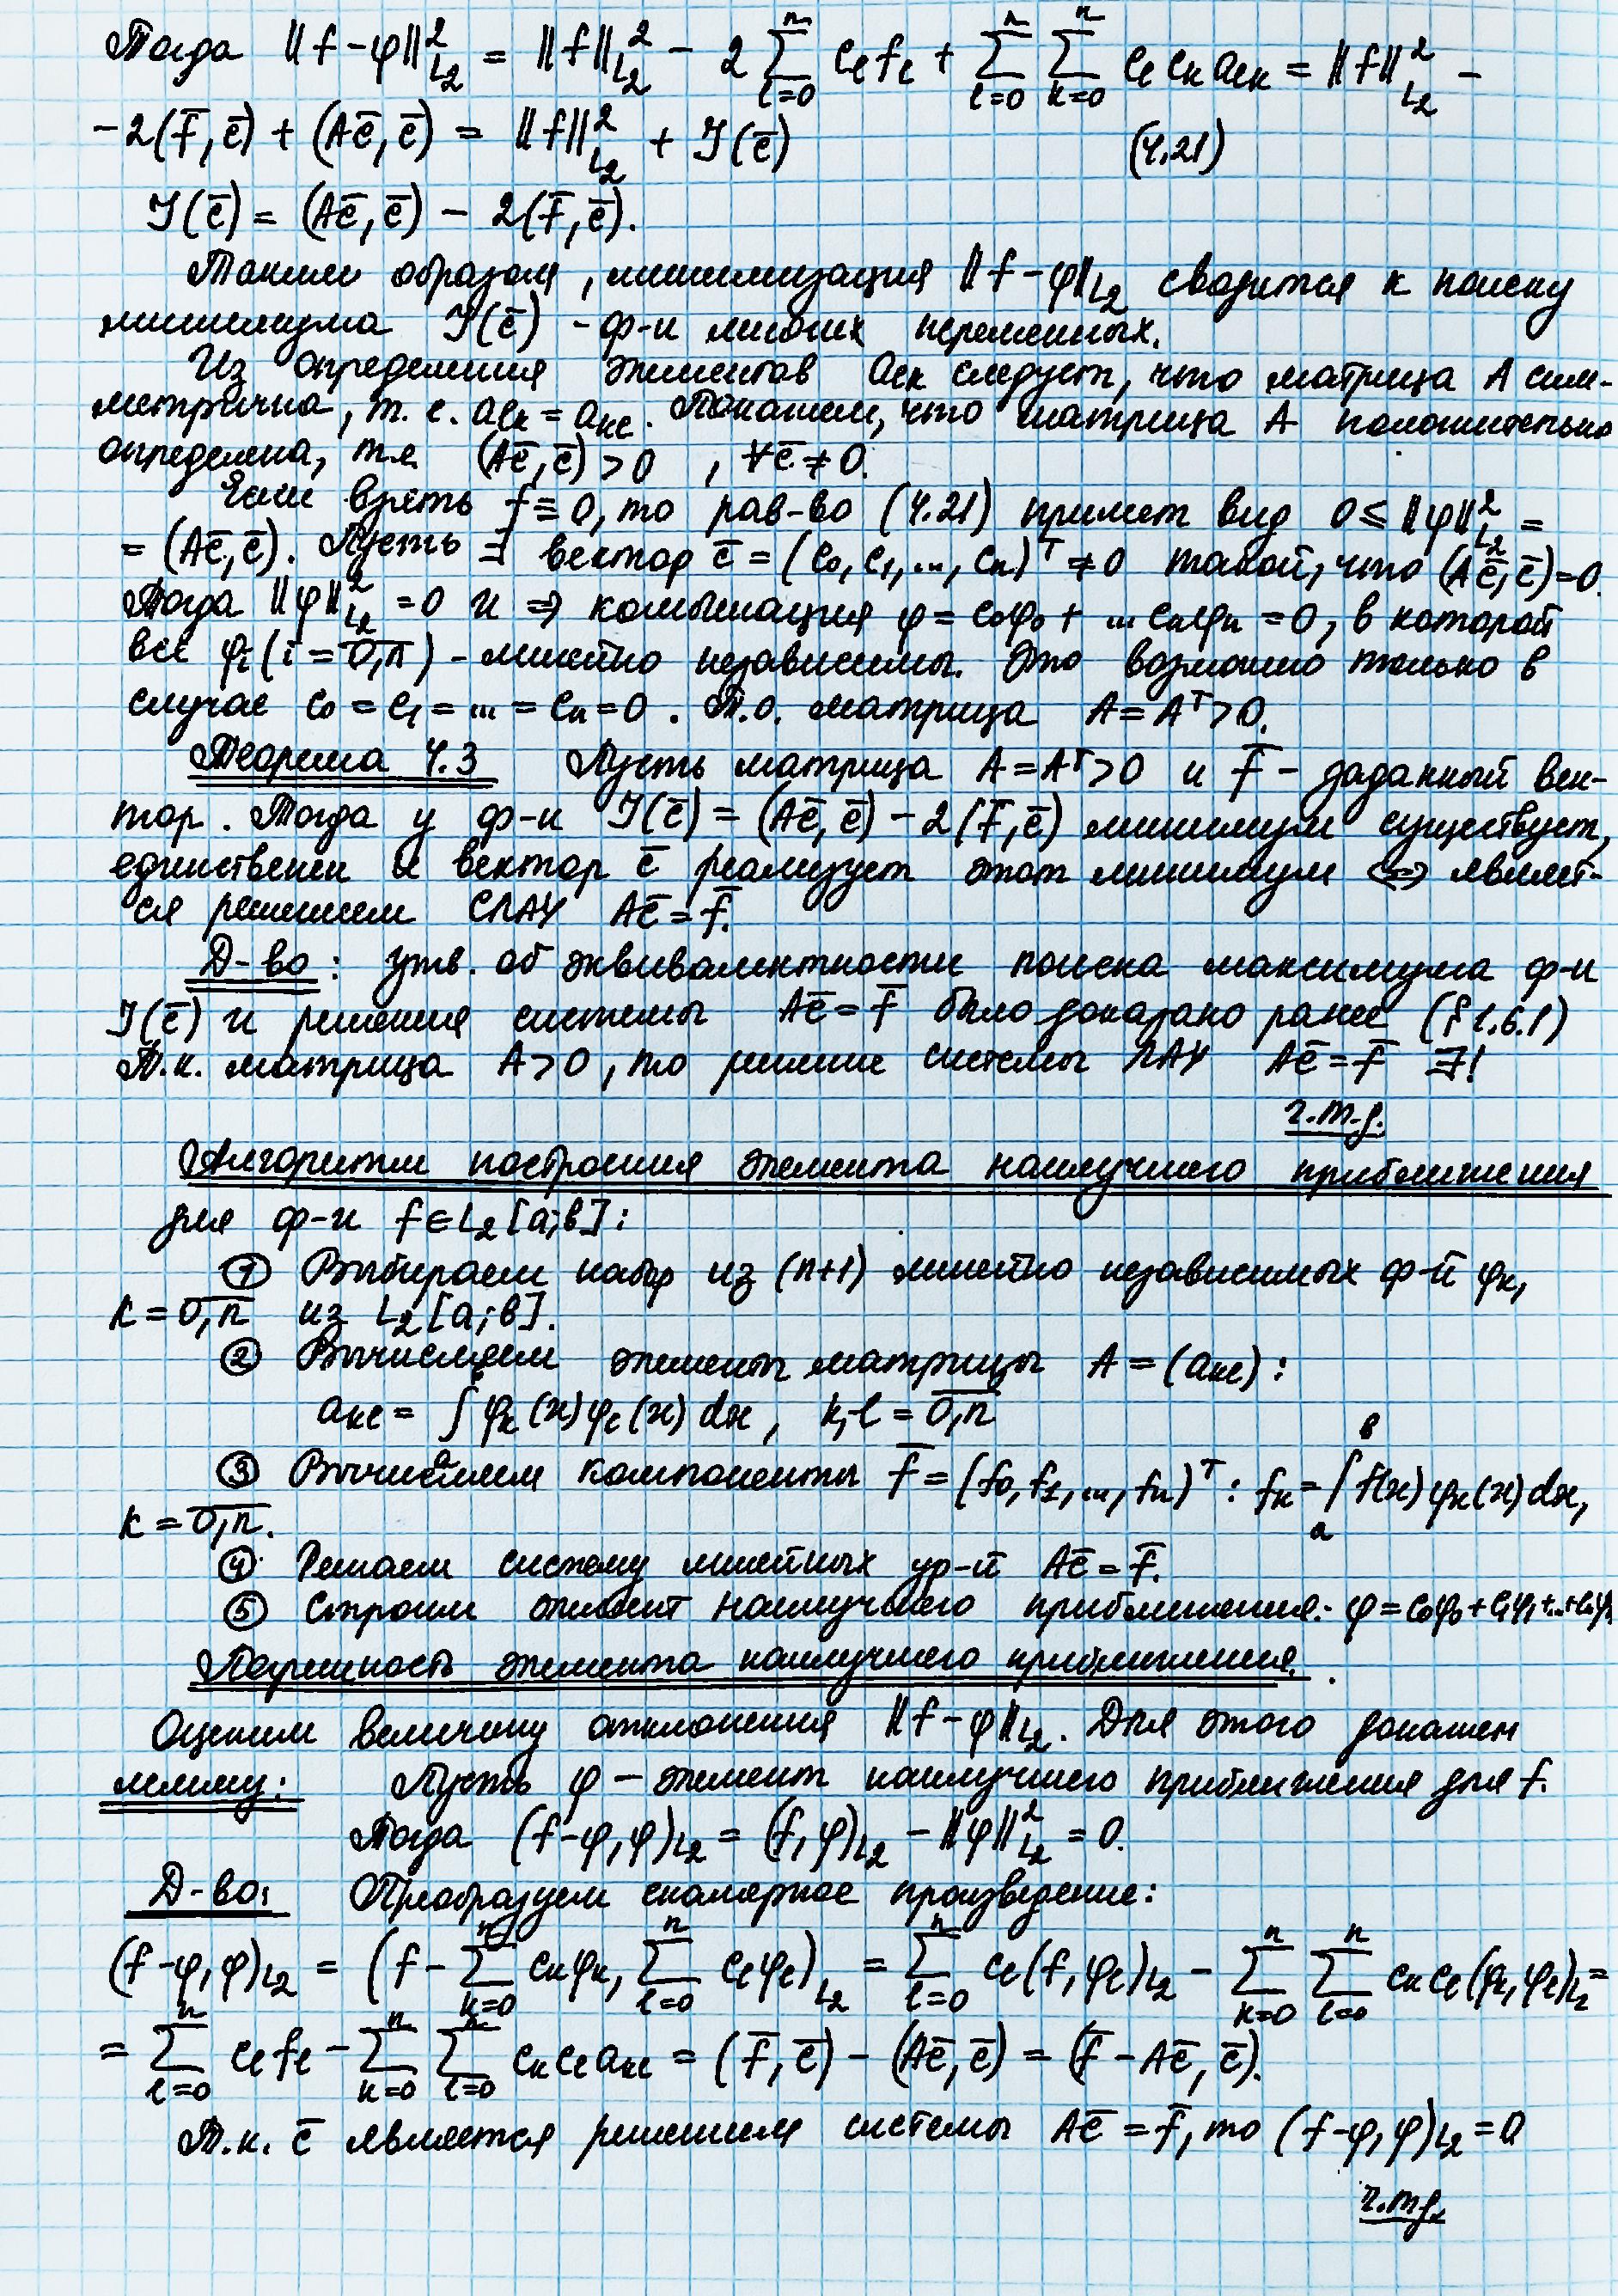 Тогда ‖f-φ‖²_{L₂} = ‖f‖²_{L₂} - 2 ∑_{l=0}^{n} c_l f_l + ∑_{l=0}^{n} ∑_{k=0}^{n} c_l c_k a_{lk} = ‖f‖²_{L₂} -
-2(f̄, c̄) + (Ac̄, c̄) = ‖f‖²_{L₂} + J(c̄) (4.21)
J(c̄) = (Ac̄, c̄) - 2(f̄, c̄).
Таким образом, минимизация ‖f-φ‖_{L₂} сводится к поиску
минимума J(c̄) - ф-и многих переменных.
Из определения элементов a_{lk} следует, что матрица A сим-
метрична, т.е. a_{lk} = a_{kl}. Покажем, что матрица A положительно
определена, т.е. (Ac̄, c̄) > 0, ∀c̄ ≠ 0.
Если взять f ≡ 0, то рав-во (4.21) примет вид 0 ≤ ‖φ‖²_{L₂} =
= (Ac̄, c̄). Пусть ∃ вектор c̄ = (c₀, c₁, ..., cₙ)ᵀ ≠ 0 такой, что (Ac̄, c̄) = 0.
Тогда ‖φ‖²_{L₂} = 0 и ⇒ комбинация φ = c₀φ₀ + ... cₙφₙ = 0, в которой
все φᵢ (i = 0,n) - линейно независимы. Это возможно только в
случае c₀ = c₁ = ... = cₙ = 0. Т.о. матрица A = Aᵀ > 0.
Теорема 4.3 Пусть матрица A = Aᵀ > 0 и f̄ - заданный век-
тор. Тогда у ф-и J(c̄) = (Ac̄, c̄) - 2(f̄, c̄) минимум существует,
единственен и вектор c̄ реализует этот минимум ⇔ являет-
ся решением СЛАУ Ac̄ = f̄.
Д-во: утв. об эквивалентности поиска максимума ф-и
J(c̄) и решения системы Ac̄ = f̄ было доказано ранее (§1.6.1)
Т.к. матрица A > 0, то решение системы ЛАУ Ac̄ = f̄ ∃!
ч.т.д.
Алгоритм построения элемента наилучшего приближения
для ф-и f ∈ L₂[a;b]:
① Выбираем набор из (n+1) линейно независимых ф-й φₖ,
k = 0,n из L₂[a;b].
② Вычисляем элементы матрицы A = (a_{kl}):
a_{kl} = ∫_a^b φₖ(x)φ_l(x)dx, k,l = 0,n
③ Вычисляем компоненты f̄ = (f₀, f₁, ..., fₙ)ᵀ: fₖ = ∫_a^b f(x)φₖ(x)dx,
k = 0,n.
④ Решаем систему линейных ур-й Ac̄ = f̄.
⑤ Строим элемент наилучшего приближения: φ = c₀φ₀ + c₁φ₁ + ... + cₙφₙ
Погрешность элемента наилучшего приближения.
Оценим величину отклонения ‖f-φ‖_{L₂}. Для этого докажем
лемму: Пусть φ - элемент наилучшего приближения для f.
Тогда (f-φ, φ)_{L₂} = (f, φ)_{L₂} - ‖φ‖²_{L₂} = 0.
Д-во: Преобразуем скалярное произведение:
(f-φ, φ)_{L₂} = (f - ∑_{k=0}^{n} cₖφₖ, ∑_{l=0}^{n} c_lφ_l)_{L₂} = ∑_{l=0}^{n} c_l(f, φ_l)_{L₂} - ∑_{k=0}^{n} ∑_{l=0}^{n} cₖc_l(φₖ, φ_l)_{L₂} =
= ∑_{l=0}^{n} c_l f_l - ∑_{k=0}^{n} ∑_{l=0}^{n} cₖc_l a_{kl} = (f̄, c̄) - (Ac̄, c̄) = (f̄ - Ac̄, c̄).
Т.к. c̄ является решением системы Ac̄ = f̄, то (f-φ, φ)_{L₂} = 0
ч.т.д.